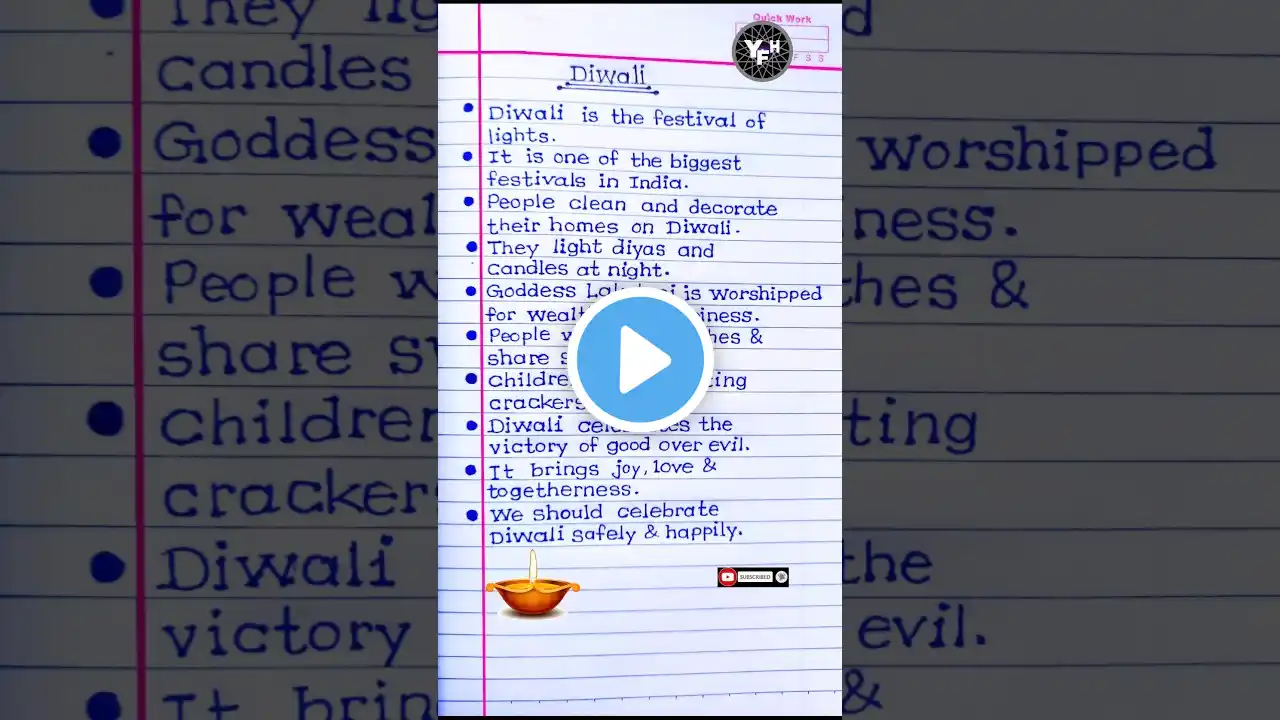 Quick Work
YFH
F S S
Diwali
Diwali is the festival of
lights.
It is one of the biggest
festivals in India.
People clean and decorate
their homes on Diwali.
They light diyas and
candles at night.
Goddess is worshipped
for
People &
share
crackers
Diwali the
victory of good over evil.
It brings joy, love &
togetherness.
We should celebrate
Diwali safely & happily.
SUBSCRIBED